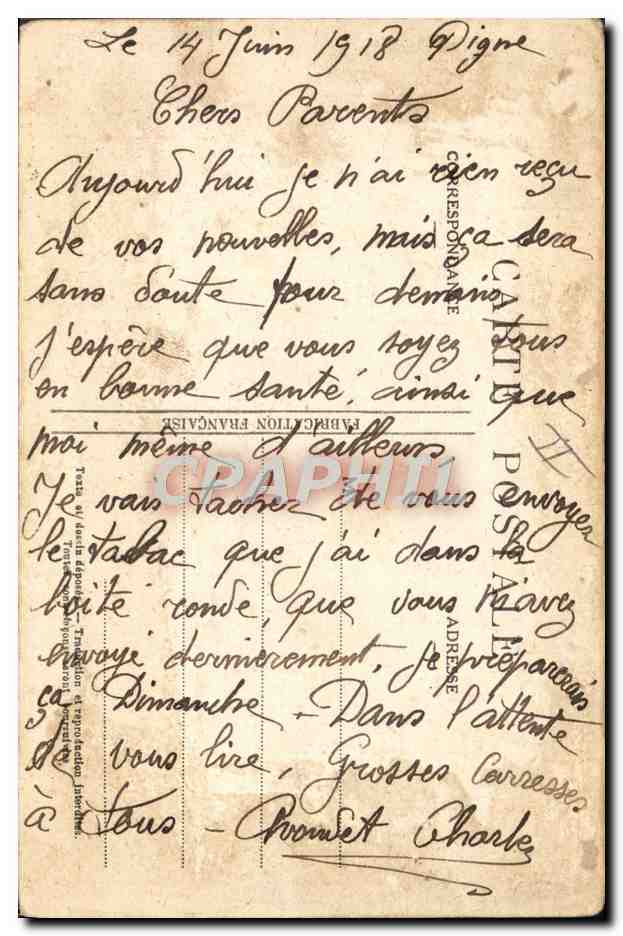 Le 14 Juin 1918 Digne
Chers Parents
Aujourd'hui je n'ai rien reçu
de vos nouvelles, mais ça sera
sans doute pour demain,
j'espère que vous soyez tous
en bonne santé, ainsi que
moi même d'ailleurs
Je vais tacher de vous envoyer
le tabac que j'ai dans la
boite ronde, que vous m'avez
envoyé dernièrement, je préparerais
ça Dimanche - Dans l'attente
de vous lire, Grosses Carresses
à tous - Charles
II
CARTE POSTALE
CORRESPONDANCE
ADRESSE
FABRICATION FRANÇAISE
Texte et dessin déposés. - Traduction et reproduction interdites.
CPAPHIL